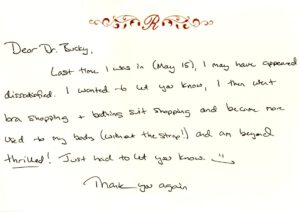 R
Dear Dr. Bucky,
Last time I was in (May 15), I may have appeared
dissatisfied. I wanted to let you know, I then went
bra shopping + bathing suit shopping and became more
used to my body (without the strap!) and am beyond
thrilled! Just had to let you know.
Thank you again